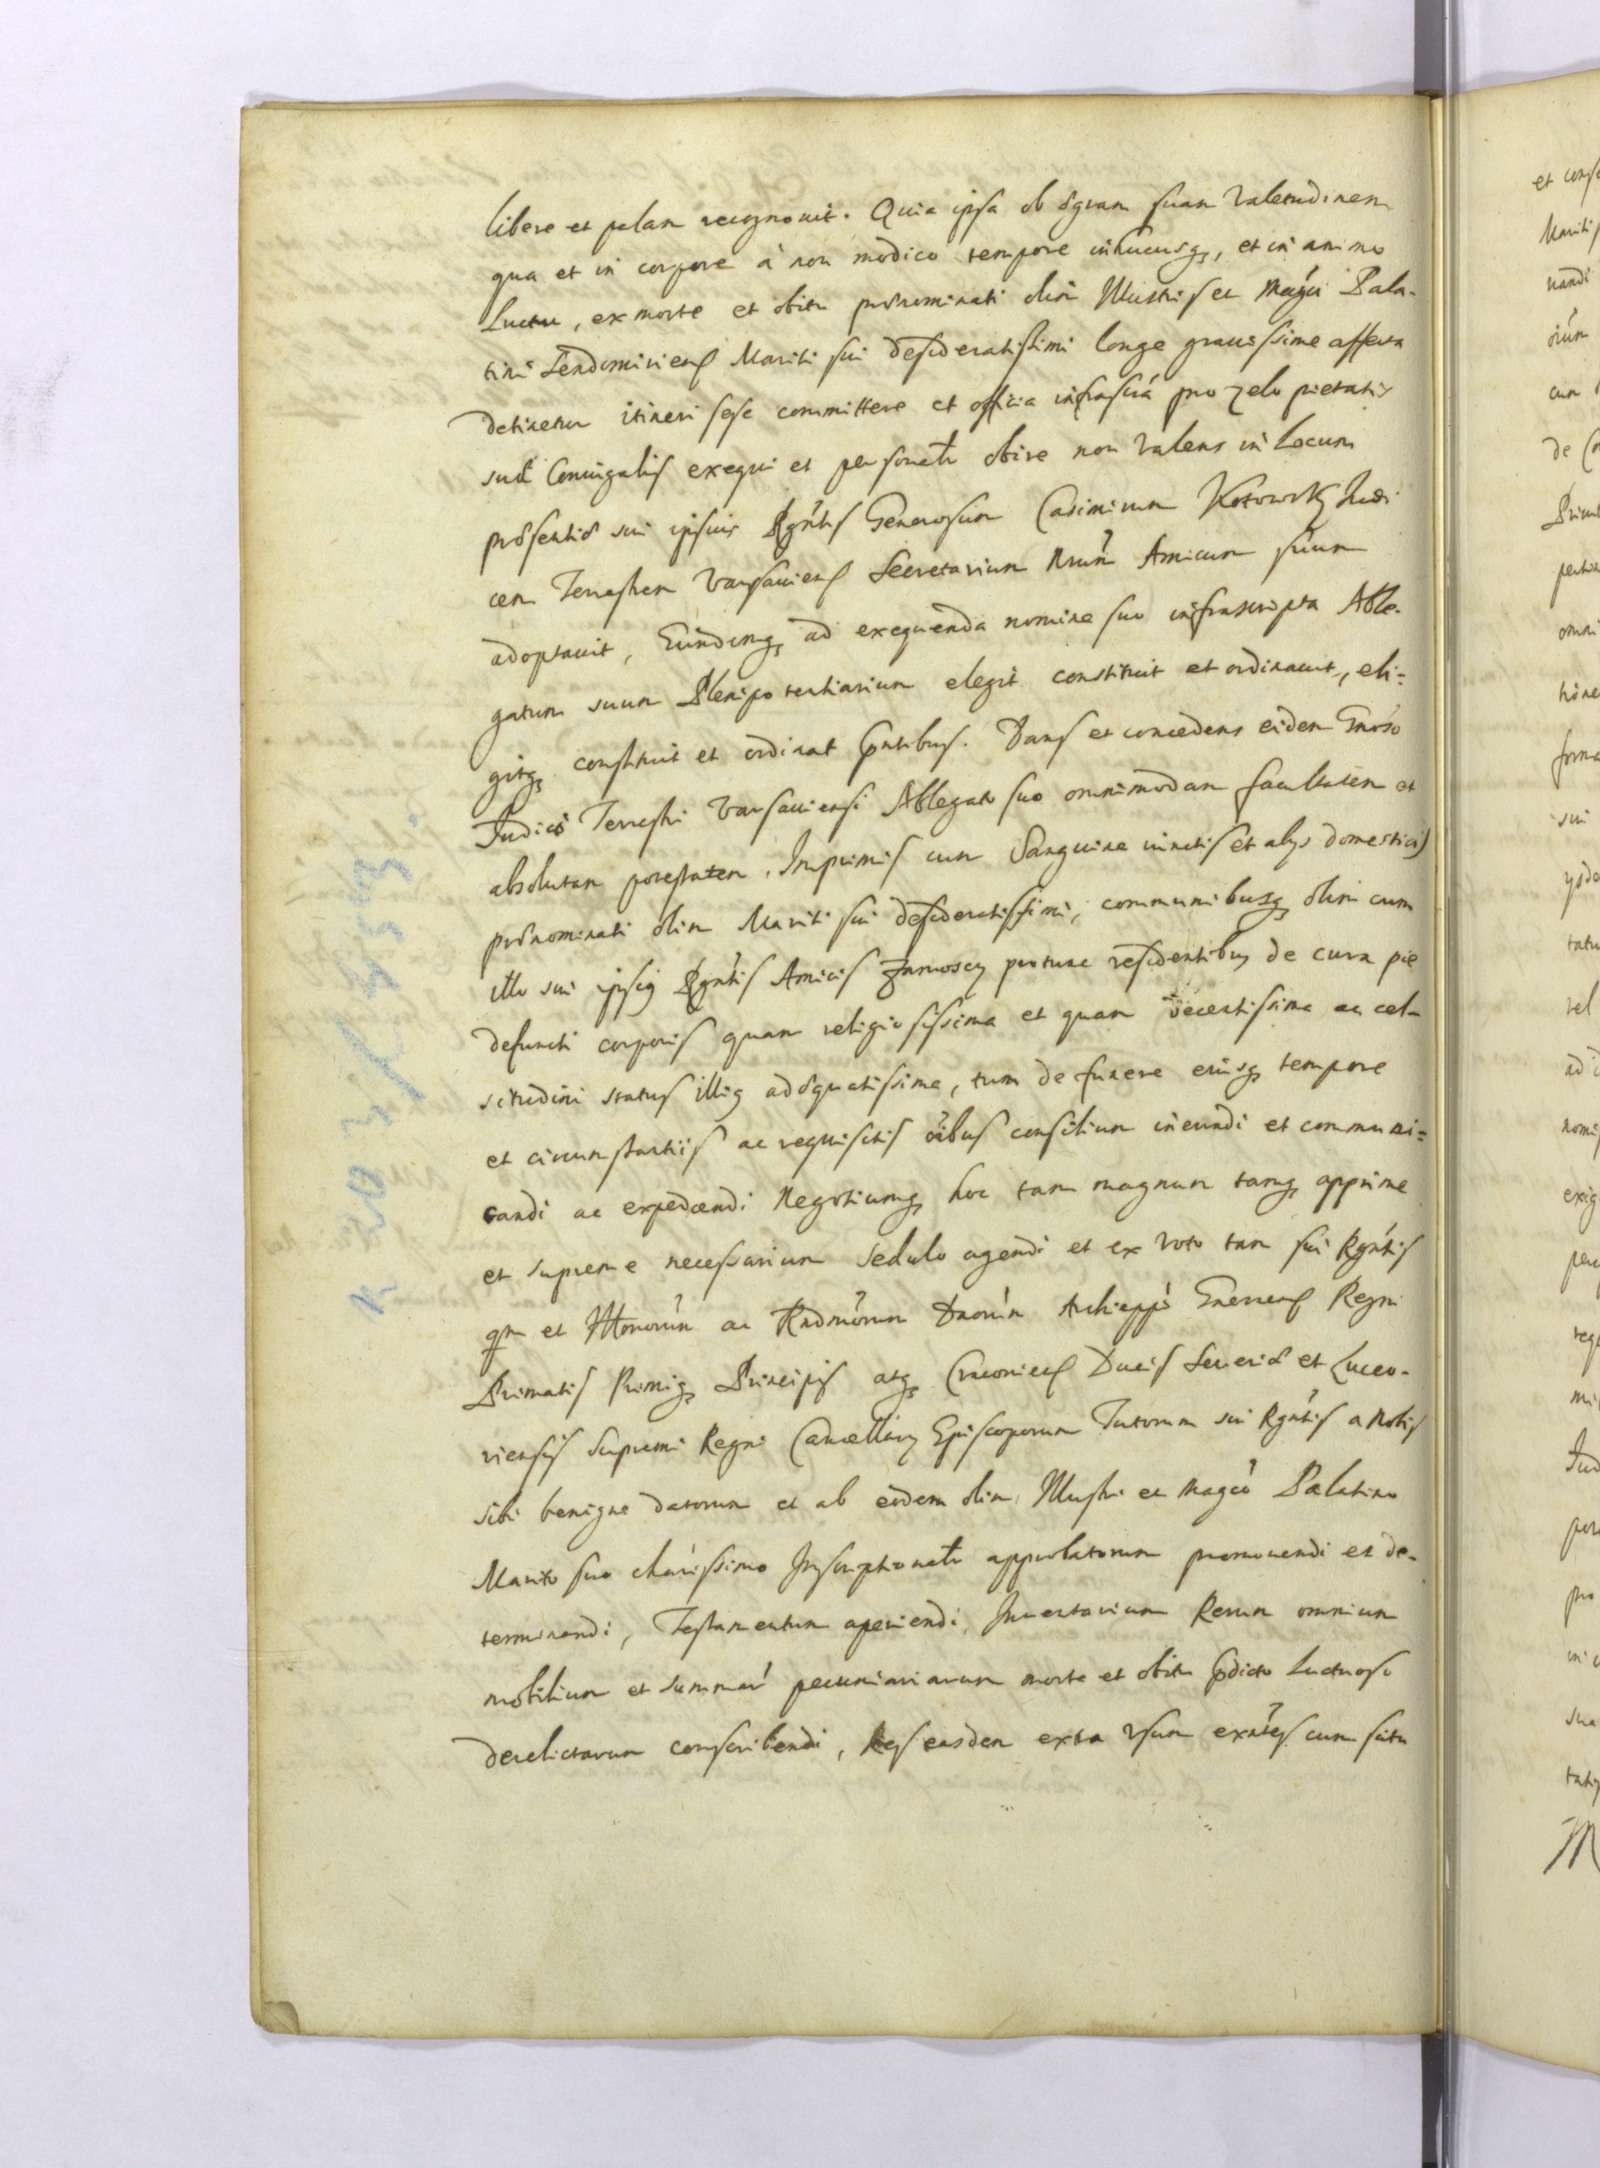 libere et palam recognovit. Quia ipsa ob ægram suam valetudinem
qua et in corpore à non modico tempore inhucusq, et in animo
Luctu, ex morte et obitu prænominati olim Illustris et Magci Pala-
tini Sendomiriens Mariti sui desideratissimi longe gravissime affecta
detinetur itineri sese committere et officia infrascra pro zelo pietatis
suæ Coniugalis exequi et personalr obire non valens in Locum
præsentiæ sui ipsius Rgntis Generosum Casimirum Kotowsky Judi
cem Terrestrem Varsaviens Secretarium Nrum Amicum suum
adoptavit, Eundemq ad exequenda nomine suo infrascripta Able-
gatum suum Plenipotentiarium elegit constituit et ordinavit, eli=
gitq constituit et ordinat pntibus. Dans et concedens eidem Gnoso
Judici Terrestri Varsaviensi Ablegato suo omnimodam facultatem et
absolutam potestatem. Inprimis cum Sanguine iunctis et alys domesticis
prænominati olim Mariti sui desideratissimi, communibusq olim cum
illo sui ipsiq Rgntis Amicis Zamoscy protunc residentibus de cura pie
defuncti corporis quam religiosissima et quam decentissima ac cel-
situdini status illiq adæquatissima, tum de funere eiusq tempore
et circumstantiis ac requisitis oibus consilium ineundi et communi=
candi ac expediendi Negotiumq hoc tam magnum tamq apprime
et supreme necessarium sedulo agendi et ex voto tam sui Rgntis
qm et Illmorum ac Rndmorum Dnorum Archieppi Gnesnens Regni
Primatis Primiq Principis atq Cracoviens Ducis Severiæ et Luceo-
riensis Supremi Regni Cancellary Episcoporum Tutorum sui Rgntis a Nobis
sibi benigne datorum et ab eodem olim Illustri et Magco Palatino
Marito suo charissimo Inscriptionalr approbatorum promovendi et de-
terminandi, Testamentum aperiendi, Inventarium Rerum omnium
mobilium et summar pecuniariarum morte et obitu pdicto Luctuoso
derelictarum conscribendi, Res easdem extra usum exntes cum scitu